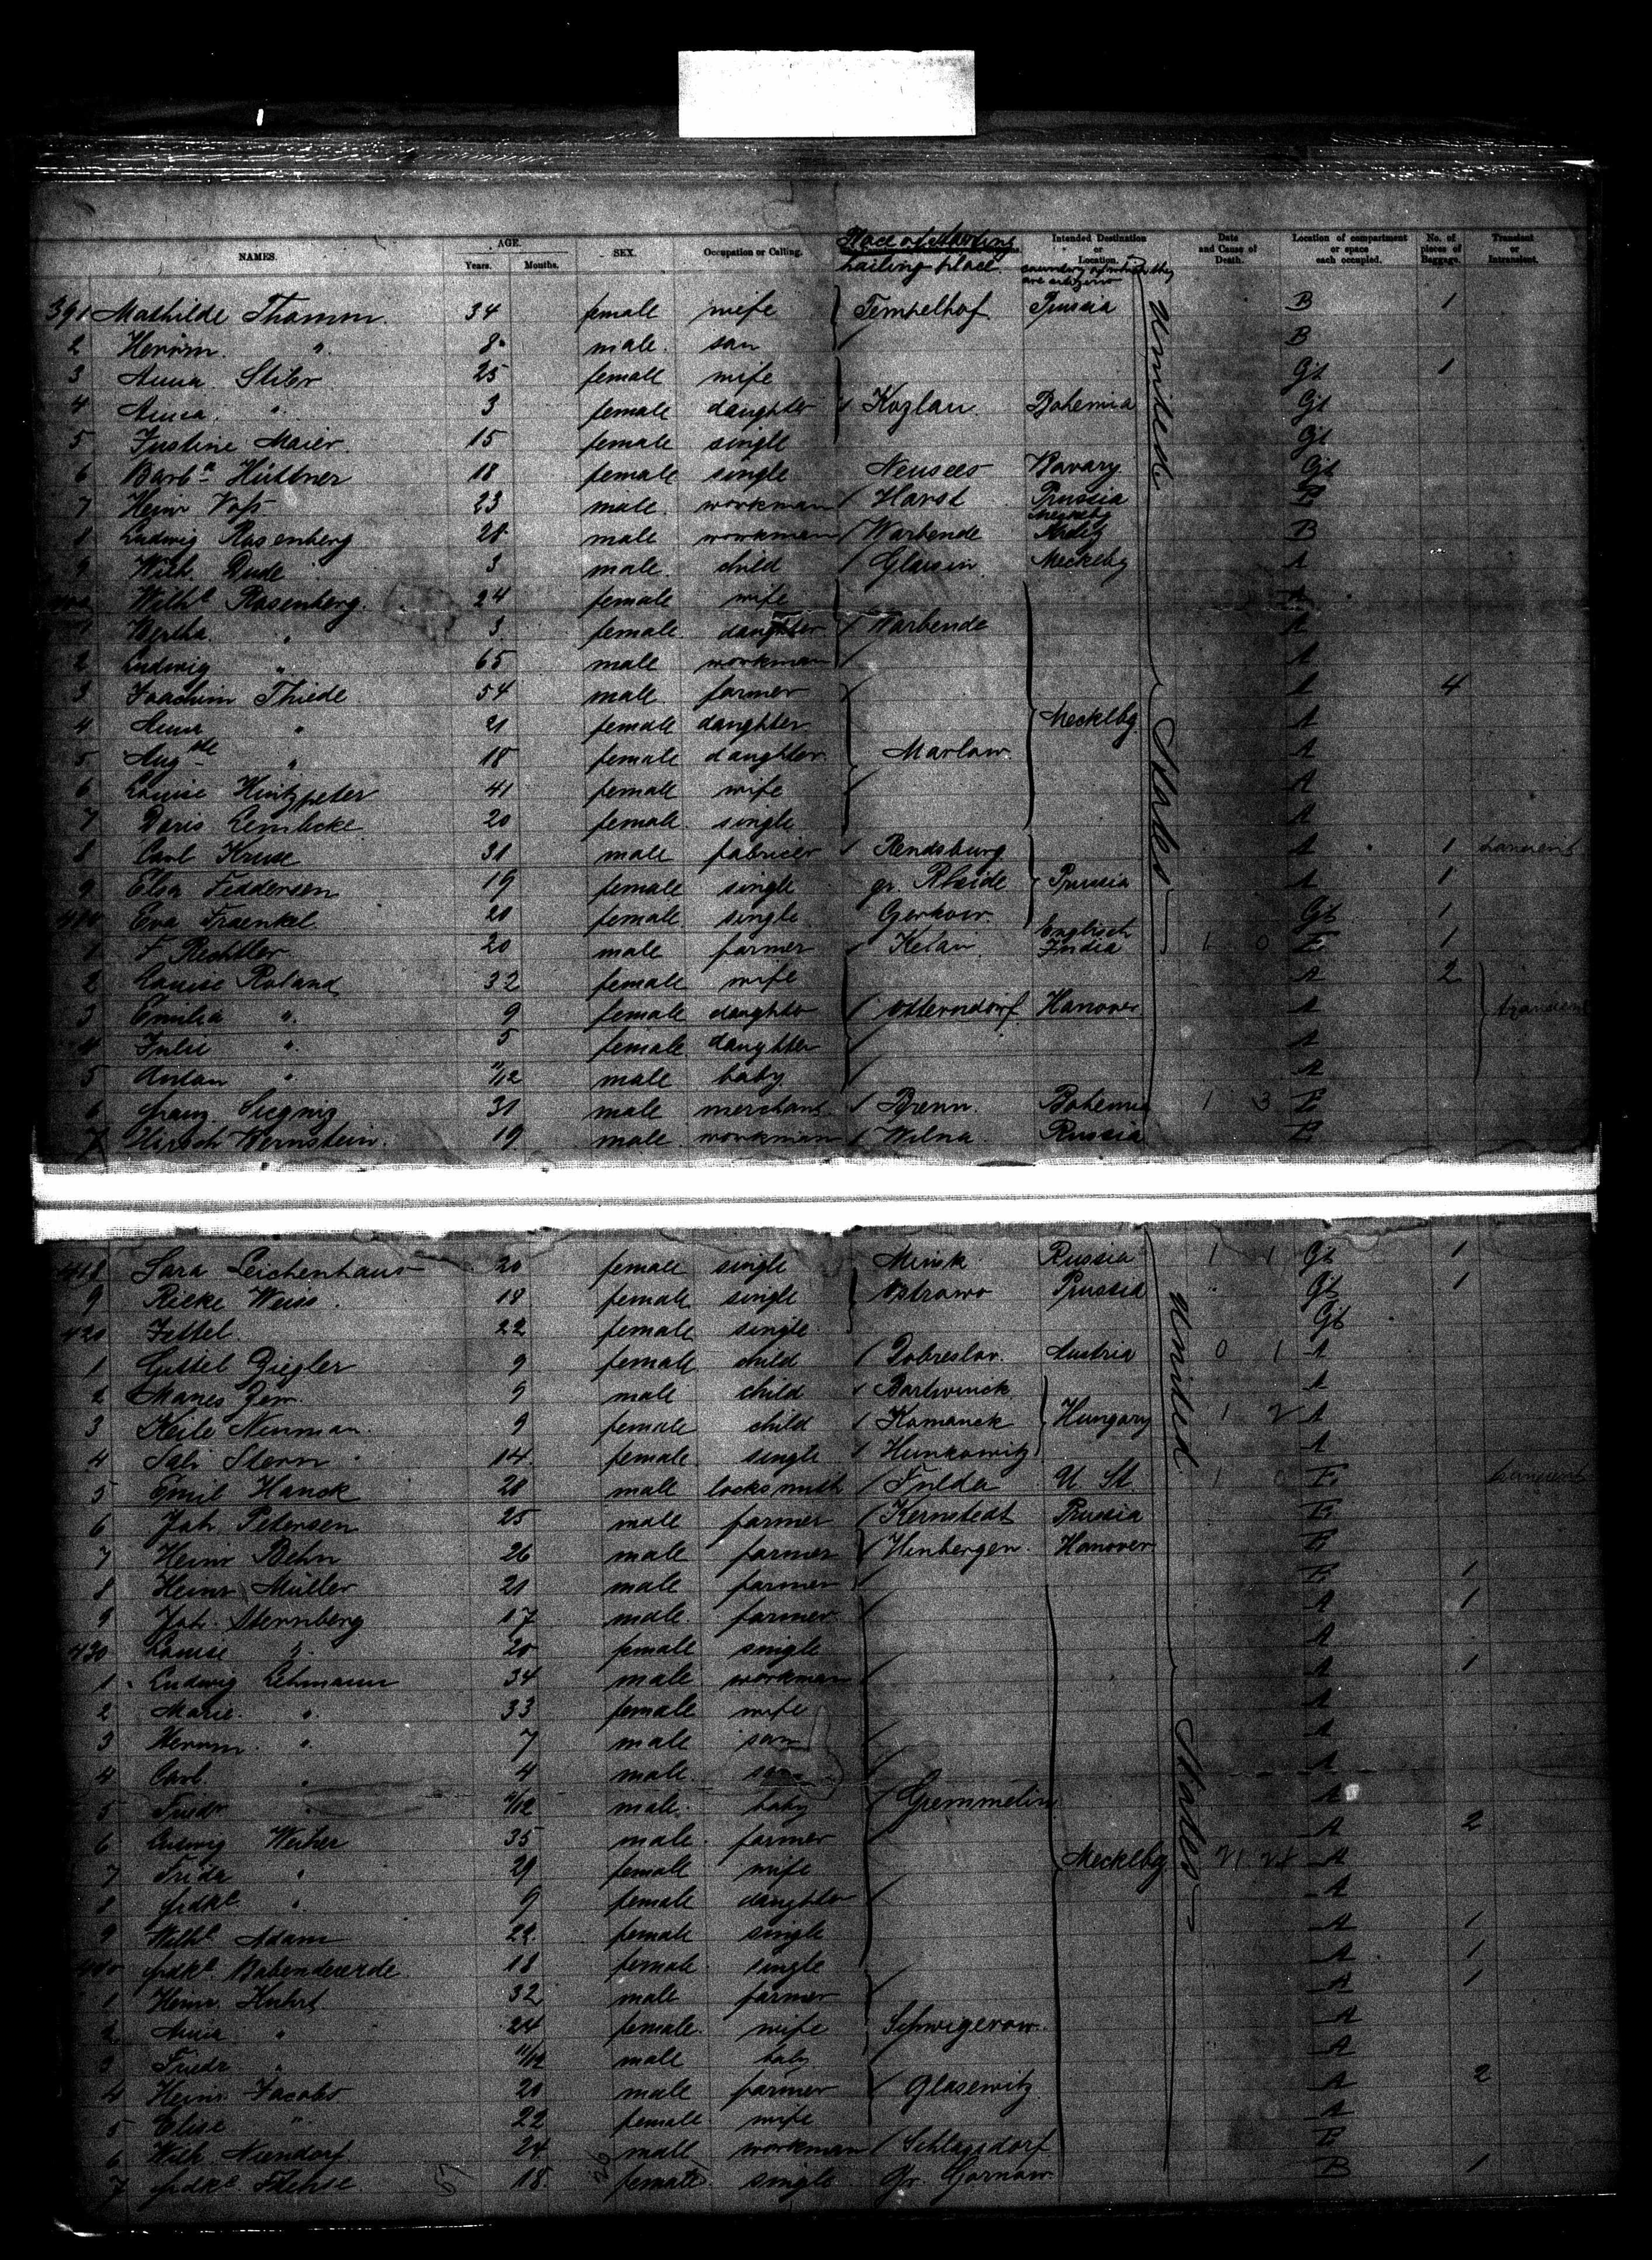 NAMES. AGE. Years. Months. SEX. Occupation or Calling. Place of starting hailing place. Intended Destination or Location. country of which they are citizens Date and Cause of Death. Location of compartment or space each occupied. No. of pieces of Baggage. Transient or Intransient.
391 Mathilde Thamm. 34 female wife Tempelhof Prussia B 1
2 Herrm. " 8 male. son B
3 Anna Stiler 25 female wife Gt 1
4 Anna " 3 female daughter Kozlau Bohemia Gt
5 Justine Maier 15 female single Gt
6 Barba Hüttner 18 female single Neusees Bavary Gt
7 Heinr Voß 23 male. workman Horst Prussia E
8 Ludwig Rosenberg 28 male workman Warbende B
9 Wilh. Dude 3 male. child Glaisin Meckelbg A
Wilhe Rosenberg. 24 female wife A
1 Bertha " 3 female daughter Warbende A
2 Ludwig " 65 male workman A
3 Joachim Thiede 54 male farmer A 4
4 Anna " 21 female daughter Mecklbg. A
5 Augste " 18 female daughter Marlow A
6 Louise Hintzpeter 41 female wife A
7 Doris Lembcke 20 female single A
8 Carl Kruse 31 male Rendsburg A 1
9 Elsa Feddersen 19 female single gr. Rheide Prussia A 1
410 Eva Fraenkel 20 female single Gt 1
1 F. Rechtler 20 male farmer Englisch India 1 0 E 1
2 Louise Roland 32 female wife A 2
3 Emilia " 9 female daughter Otterndorf Hanover A
4 Julie " 5 female daughter A
5 Anton " 11/12 male baby A
6 Franz 31 male merchant Brenn. Bohemia 1 3 E
7 Hirsch Bernstein 19 male workman Wilna Russia E
United States
418 Sara Leichenhaus 20 female single Minsk Russia 1 1 Gt 1
9 Rieke Weiss 18 female single Ostrowo Prussia " Gt 1
420 Jettel 22 female single Gt
1 Gittel Ziegler 9 female child Dobreslav. Austria 0 1 A
2 Manes 9 male child Bartwinck A
3 Keile Neuman 9 female child Komanek Hungary 1 2 A
4 Sali Stern 14 female single Hunkowitz A
5 Emil Hanck 20 male locksmith Fulda U St. 1 0 E
6 Joh Petersen 25 male farmer Kernstedt Prussia E
7 Heinr Behn 26 male farmer Hinbergen. Hanover E
8 Heinr Müller 21 male farmer E 1
9 Joh. Sternberg 17 male. farmer A 1
430 Louise " 20 female single A
1 Ludwig Lehmann 34 male workman A 1
2 Marie " 33 female wife A
3 Herrm. " 7 male son A
4 Carl " 4 male. son A
5 Friedr " 11/12 male. baby Gremmelin A
6 Ludwig Weiher 35 male. farmer A 2
7 Frida " 29 female wife Mecklbg 21 28 A
8 Frdke " 9 female daughter A
9 Wilhe Adam 22 female single A 1
440 Frdke. Babendererde 18 female single A 1
1 Heinr. Kuhrt 32 male farmer A 1
2 Anna " 24 female. wife Schwigerow. A
3 Friedr " 11/12 male baby A
4 Heinr. Jacobs 20 male farmer Glasewitz A 2
5 Elise " 22 female. wife A
6 Wilh. Niendorf 24 male workman Schlagsdorf B
7 Frdke 18. female single Gr. Gornow. B 1
United States